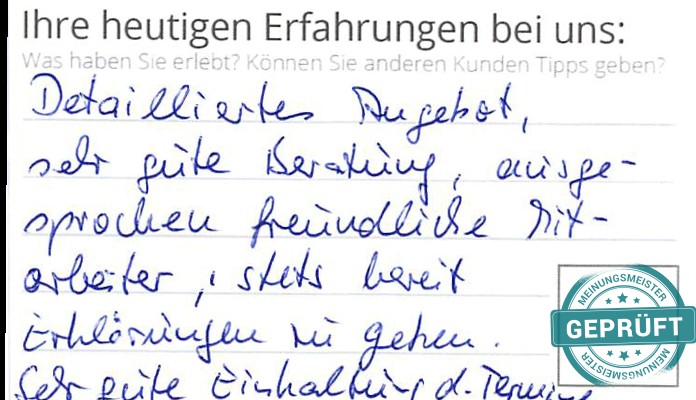 Ihre heutigen Erfahrungen bei uns:
Was haben Sie erlebt? Können Sie anderen Kunden Tipps geben?
Detailliertes Angebot,
sehr gute Beratung, ausge-
sprochen freundliche Mit-
arbeiter, stets bereit
Erklärungen zu geben.
Sehr gute Einhaltung d. Termine
MEINUNGSMEISTER
GEPRÜFT
MEINUNGSMEISTER